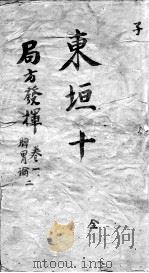 子
東垣十
局方發揮 卷一
脾胃論 二
全
mtoou.info